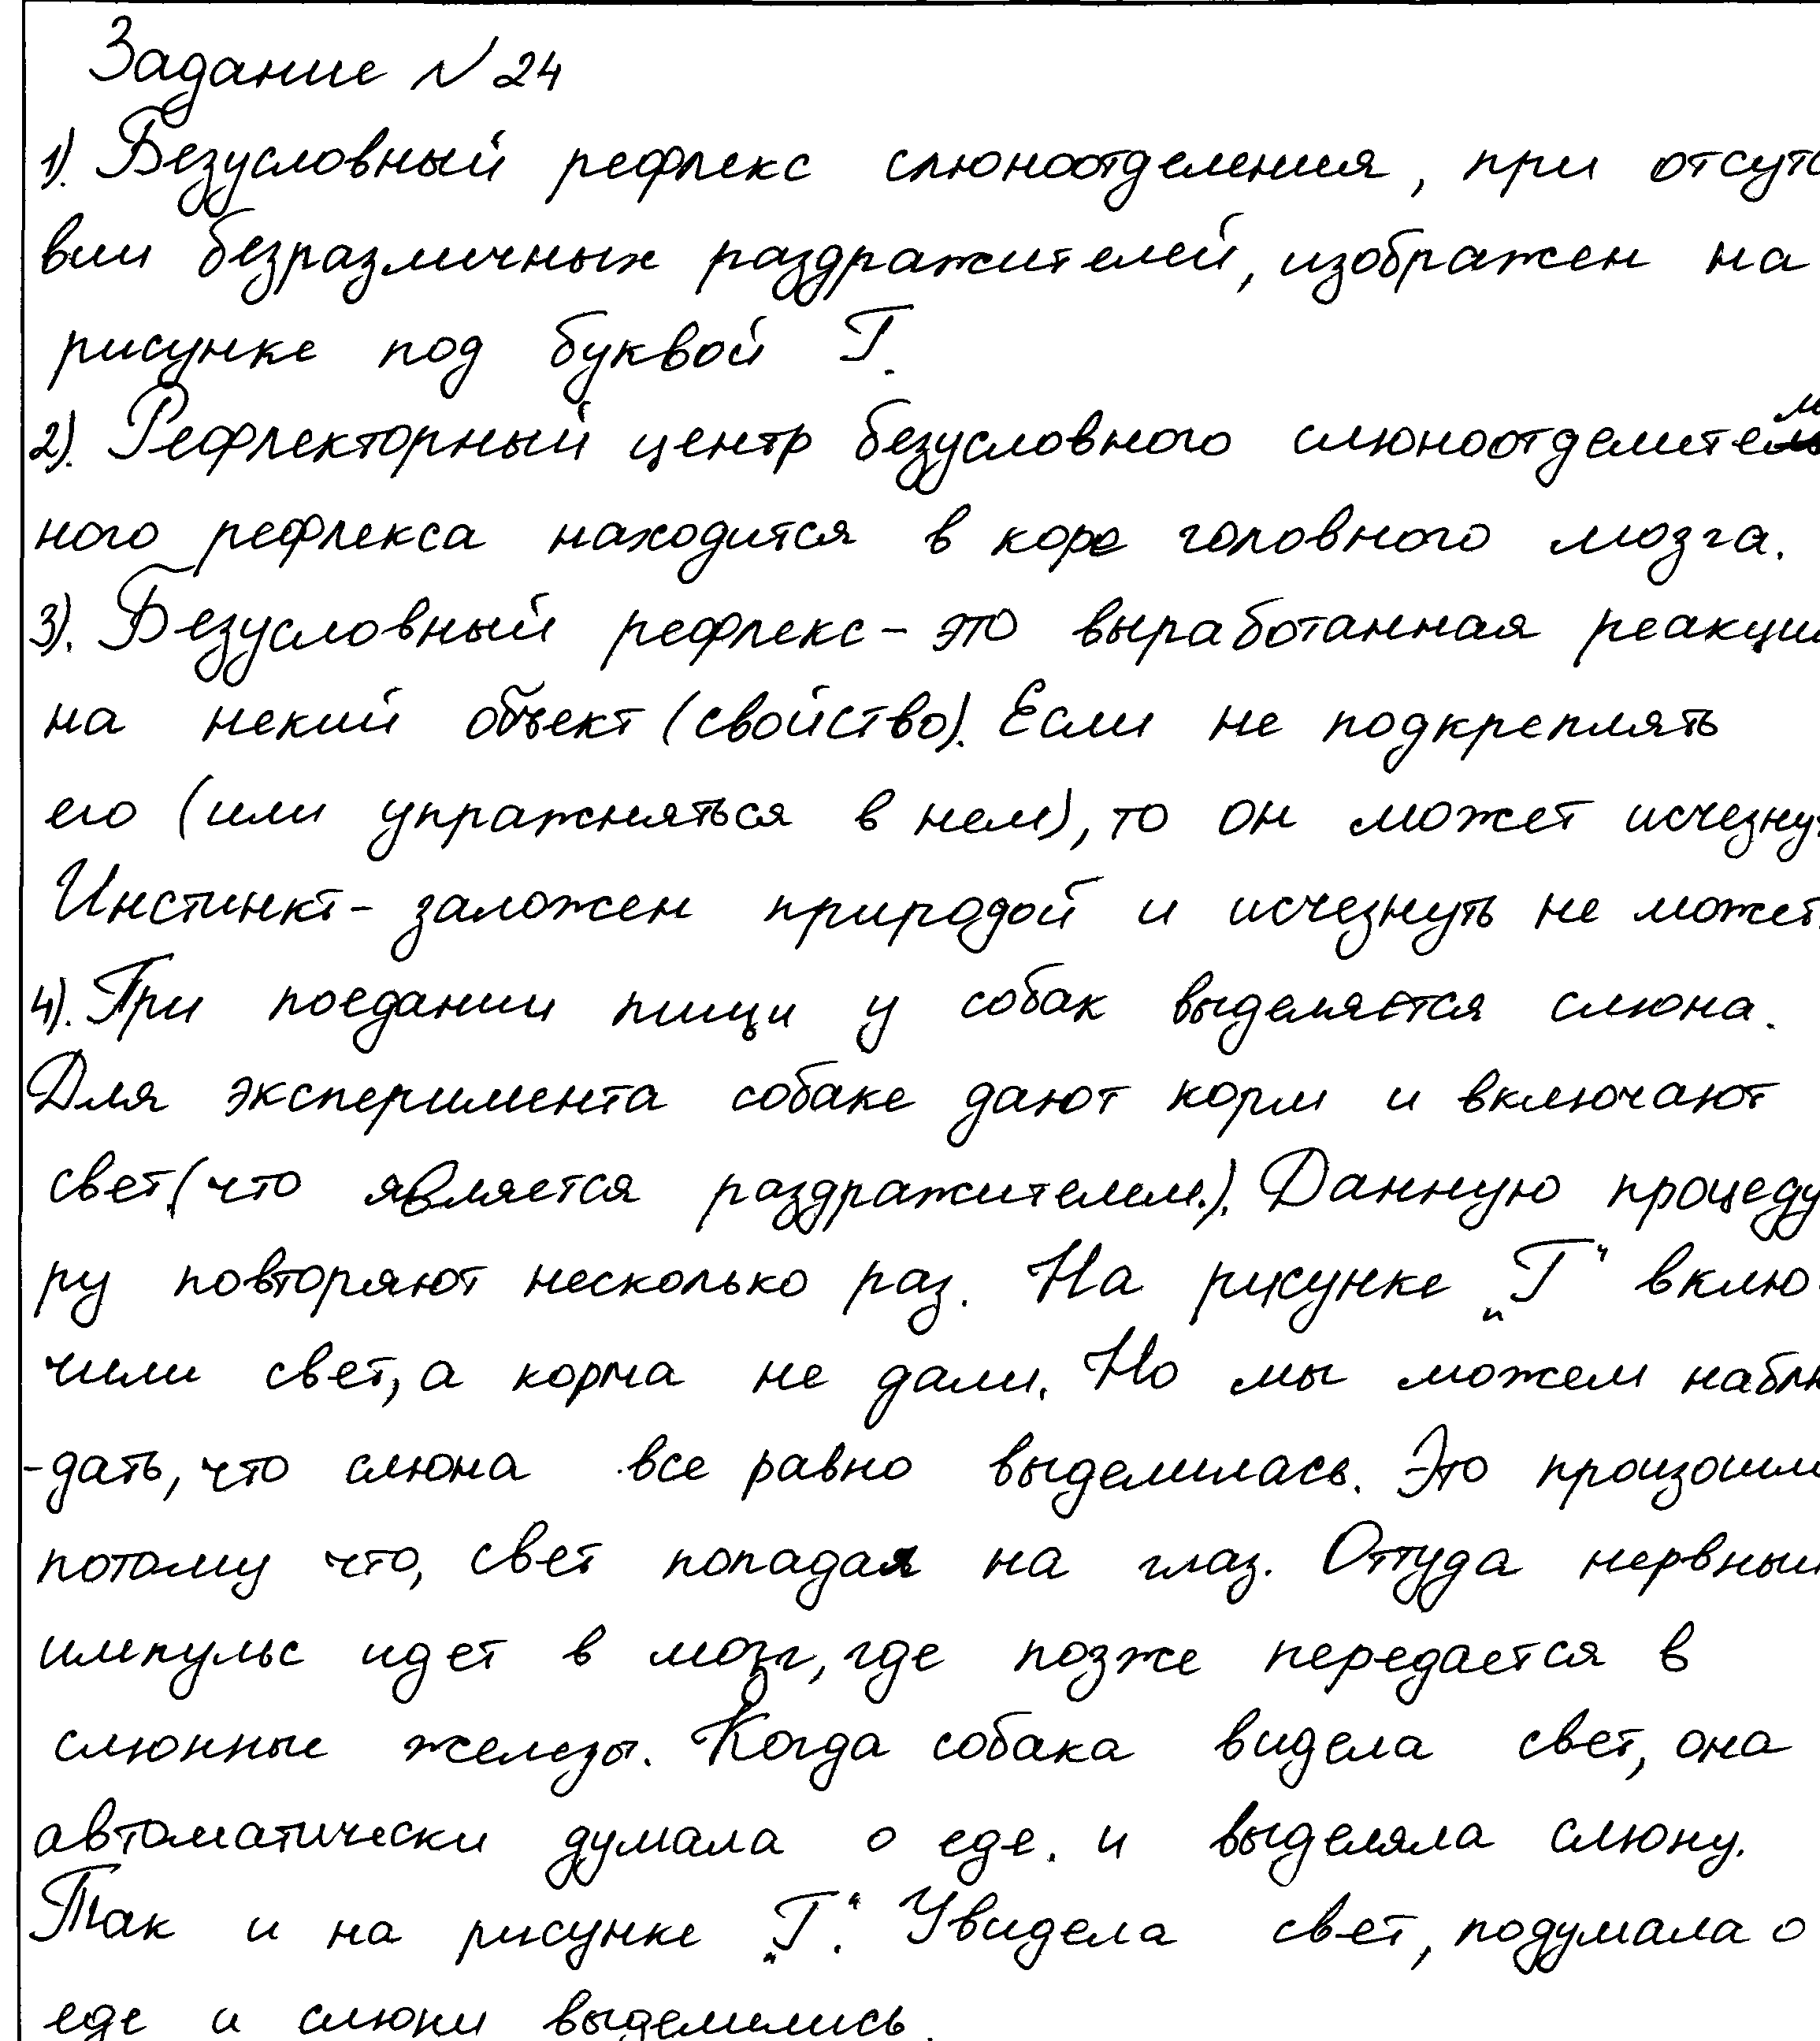 Задание N 24
1). Безусловный рефлекс слюноотделения, при отсутс
вии безразличных раздражителей, изображен на
рисунке под буквой Г.
2). Рефлекторный центр безусловного слюноотделитель
ного рефлекса находится в коре головного мозга.
3). Безусловный рефлекс - это выработанная реакция
на некий объект (свойство). Если не подкреплять
его (или упражняться в нем), то он может исчезнут
Инстинкт - заложен природой и исчезнуть не может.
4). При поедании пищи у собак выделяется слюна.
Для эксперимента собаке дают корм и включают
свет (что является раздражителем.). Данную процеду
ру повторяют несколько раз. На рисунке „Г“ вклю-
чили свет, а корма не дали. Но мы можем наблю
-дать, что слюна все равно выделилась. Это произошло
потому что, свет попадал на глаз. Оттуда нервный
импульс идет в мозг, где позже передается в
слюнные железы. Когда собака видела свет, она
автоматически думала о еде. и выделяла слюну.
Так и на рисунке „Г“. Увидела свет, подумала о
еде и слюни выделились.